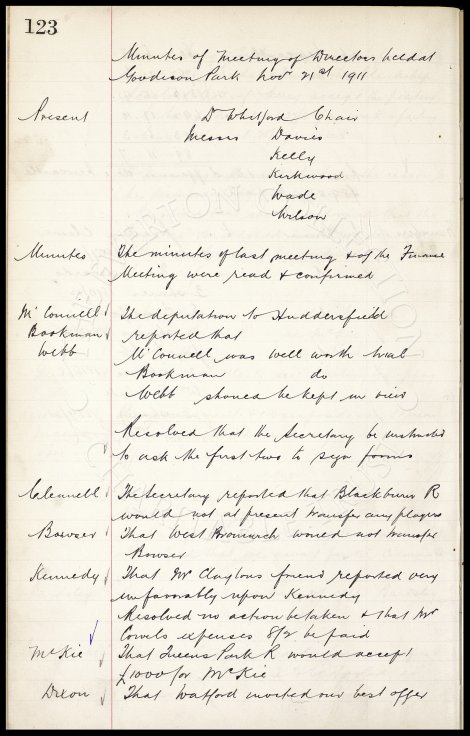 123
Minutes of Meeting of Directors held at
Goodison Park Novr 21st 1911
Present Dr Whitford Chair
Messrs Davies
Kelly
Kirkwood
Wade
Wilson
Minutes The minutes of last meeting & of the Finance
Meeting were read & confirmed
McConnell The deputation to Huddersfield
Bookman reported that
Webb McConnell was well worth trial
Bookman do
Webb should be kept in view
Resolved that the Secretary be instructed
to ask the first two to sign forms
Clennell The Secretary reported that Blackburn R
would not at present transfer any players
Bowser That West Bromwich would not transfer
Bowser
Kennedy That Mr Claytons friend reported very
unfavorably upon Kennedy
Resolved no action be taken & that Mr
expenses 8/2 be paid
McKie That Queens Park R would accept
£1000 for McKie
Dixon That Watford invited our best offer